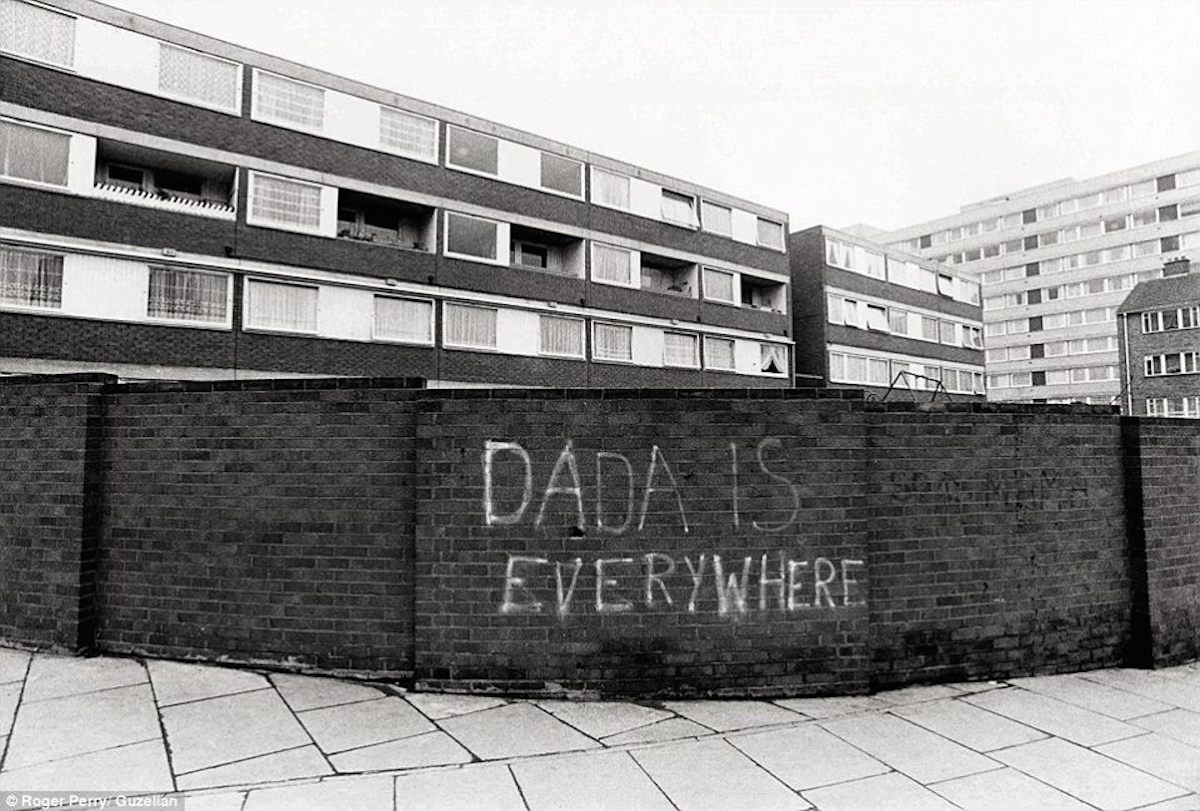 DADA IS
EVERYWHERE
© Roger Perry/ Guzelian